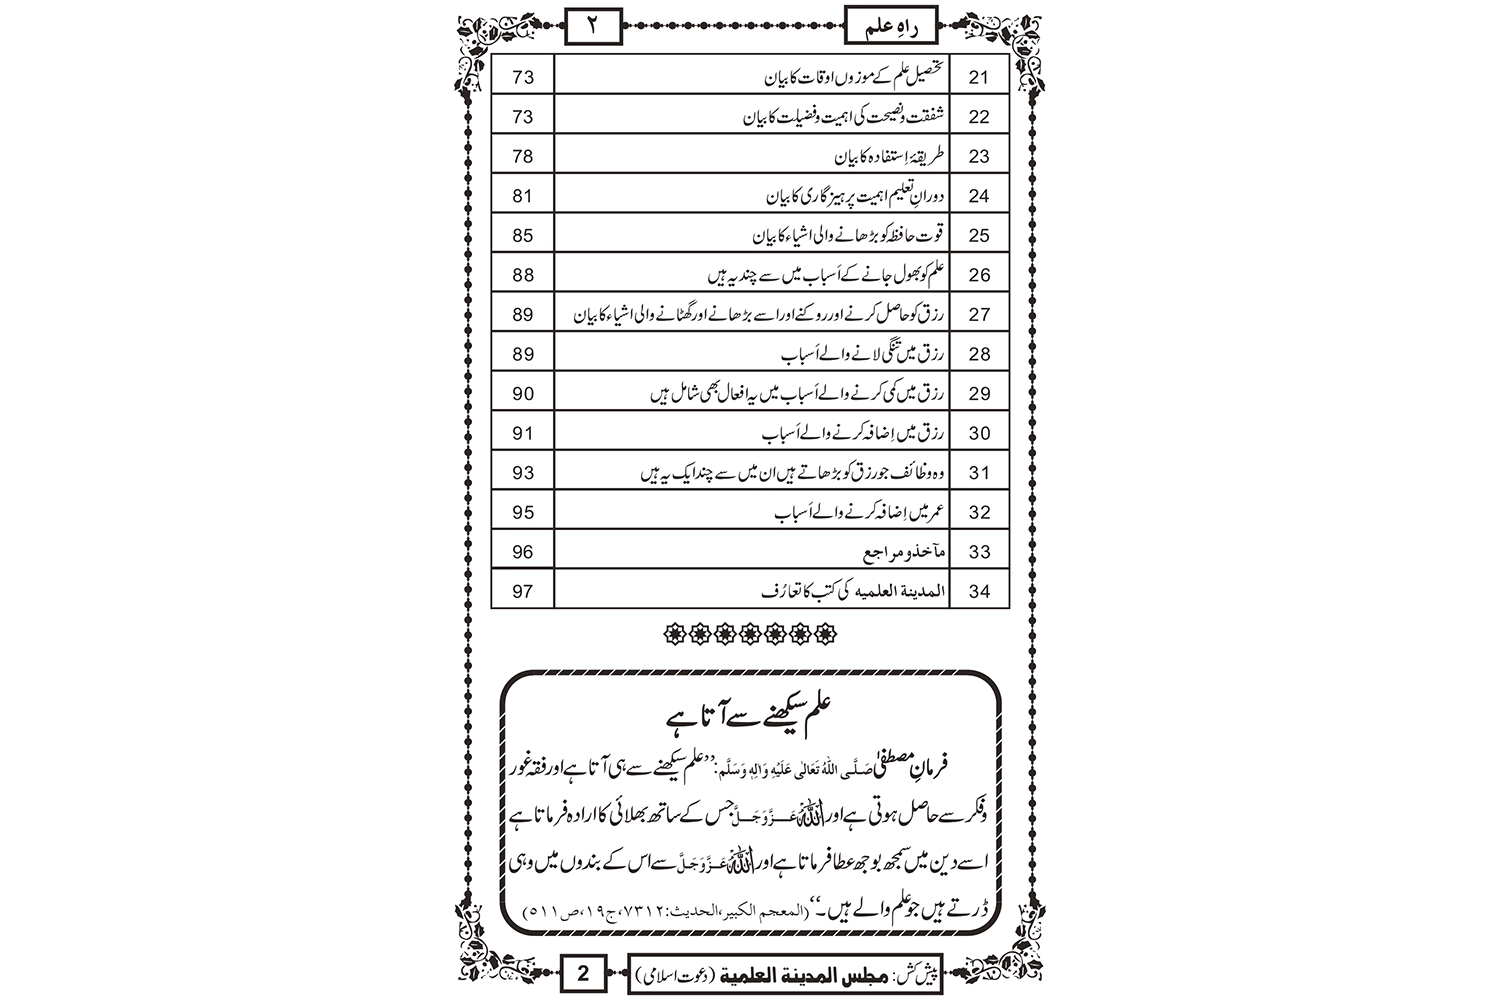 راہِ علم ۲
21 تحصیل علم کے موزوں اوقات کا بیان 73
22 شفقت ونصیحت کی اہمیت وفضیلت کا بیان 73
23 طریقۂ اِستفادہ کا بیان 78
24 دورانِ تعلیم اہمیت پرہیزگاری کا بیان 81
25 قوت حافظہ کو بڑھانے والی اشیاء کا بیان 85
26 علم کو بھول جانے کے اَسباب میں سے چند یہ ہیں 88
27 رزق کو حاصل کرنے اور روکنے اور اسے بڑھانے اور گھٹانے والی اشیاء کا بیان 89
28 رزق میں تنگی لانے والے اَسباب 89
29 رزق میں کمی کرنے والے اَسباب میں یہ افعال بھی شامل ہیں 90
30 رزق میں اِضافہ کرنے والے اَسباب 91
31 وہ وظائف جو رزق کو بڑھاتے ہیں ان میں سے چند ایک یہ ہیں 93
32 عمر میں اِضافہ کرنے والے اَسباب 95
33 مآخذ و مراجع 96
34 المدينة العلميه کی کتب کا تعارُف 97
علم سیکھنے سے آتا ہے
فرمانِ مصطفیٰ صَلَّی اللّٰہُ تَعَالٰی عَلَیْہِ وَاٰلِہٖ وَسَلَّم: ’’علم سیکھنے سے ہی آتا ہے اور فقہ غور
وفکر سے حاصل ہوتی ہے اور اللّٰہ عَزَّوَجَلَّ جس کے ساتھ بھلائی کا ارادہ فرماتا ہے
اسے دین میں سمجھ بوجھ عطا فرماتا ہے اور اللّٰہ عَزَّوَجَلَّ سے اس کے بندوں میں وہی
ڈرتے ہیں جو علم والے ہیں۔‘‘ (المعجم الکبیر، الحدیث: ۷۳۱۲، ج۱۹، ص۵۱۱)
پیش کش: مجلس المدينة العلمية (دعوت اسلامی) 2